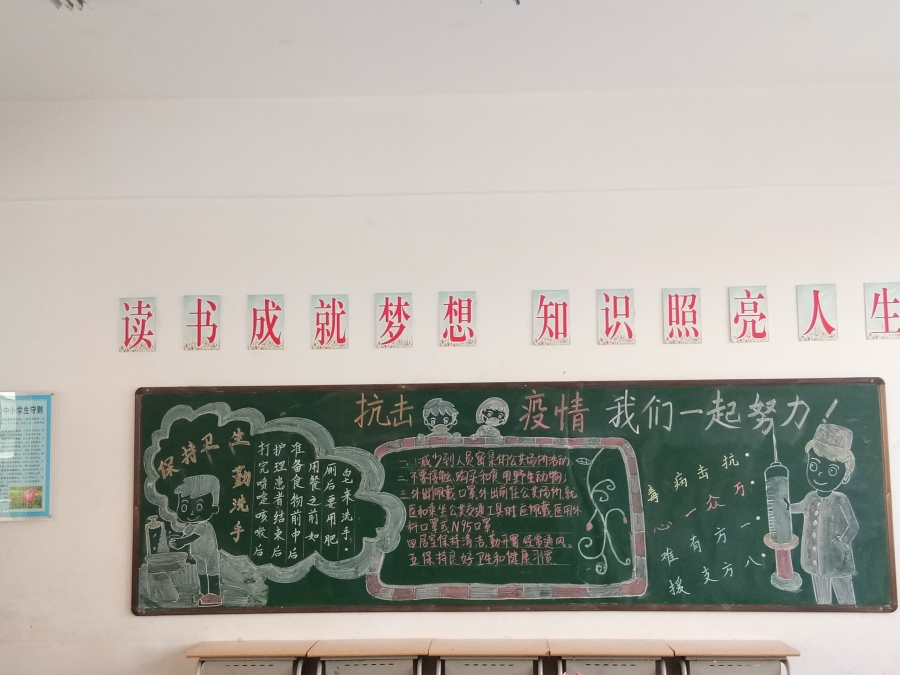 读书成就梦想 知识照亮人生
中小学生守则
抗击疫情 我们一起努力!
保持卫生
勤洗手
皂来洗手。
厕后要用肥
用餐之前如
准备食物前中后
护理患者结束后
打完喷嚏咳嗽后
一、减少到人员密集的公共场所活动
二、不要接触、购买和食用野生动物;
三、外出佩戴口罩,外出前往公共场所、就
医和乘坐公共交通工具时应佩戴医用外
科口罩或N95口罩
四、居室保持清洁,勤开窗,经常通风。
五、保持良好卫生和健康习惯
抗击病毒
万众一心
一方有难
八方支援